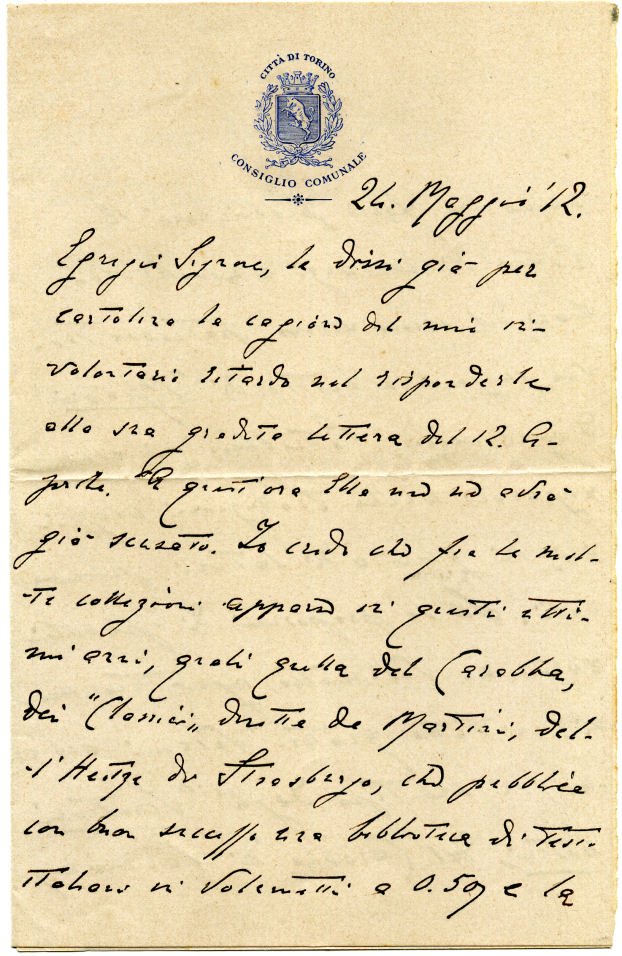 CITTÀ DI TORINO
CONSIGLIO COMUNALE
24. Maggio '12.
Egregio Signore, le dissi già per
cartolina la cagione del mio in-
volontario ritardo nel risponderle
alla sua gradita lettera del 12. A-
prile. A quest'ora Ella me ne avrà
già scusato. Io credo che fra le mol-
-te collezioni apparse in questi ulti-
mi anni, quali quella del Carabba,
dei "Classici„ diretta da Martini, del-
-l'Heitz di Strasburgo, che pubblica
con buon successo una biblioteca di testi
italiani in volumetti a 0.50, e la